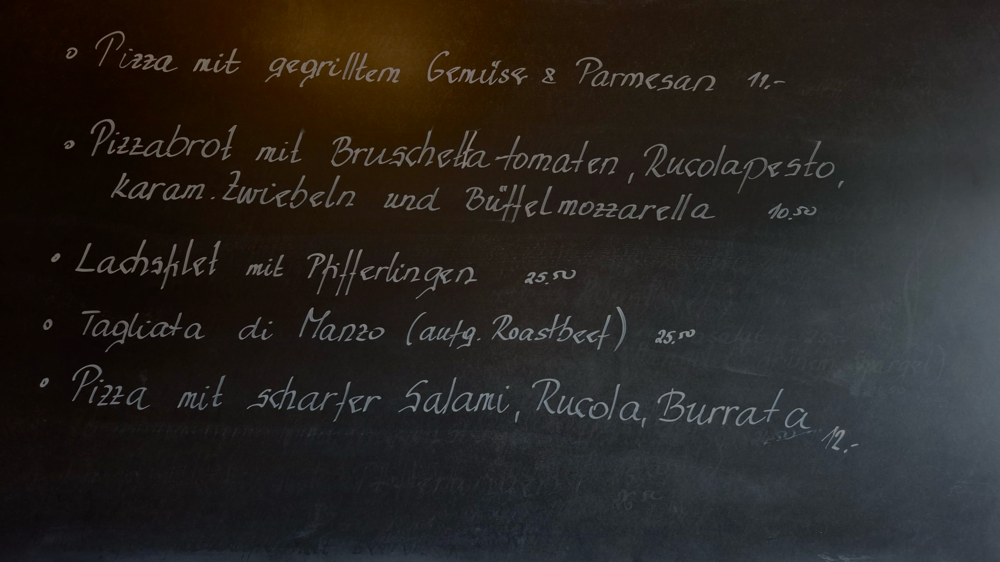 ° Pizza mit gegrilltem Gemüse & Parmesan 11,-
° Pizzabrot mit Bruschettatomaten, Rucolapesto,
karam. Zwiebeln und Büffelmozzarella 10.50
° Lachsfilet mit Pfifferlingen 25.50
° Tagliata di Manzo (aufg. Roastbeef) 25.50
° Pizza mit scharfer Salami, Rucola, Burrata
12.-